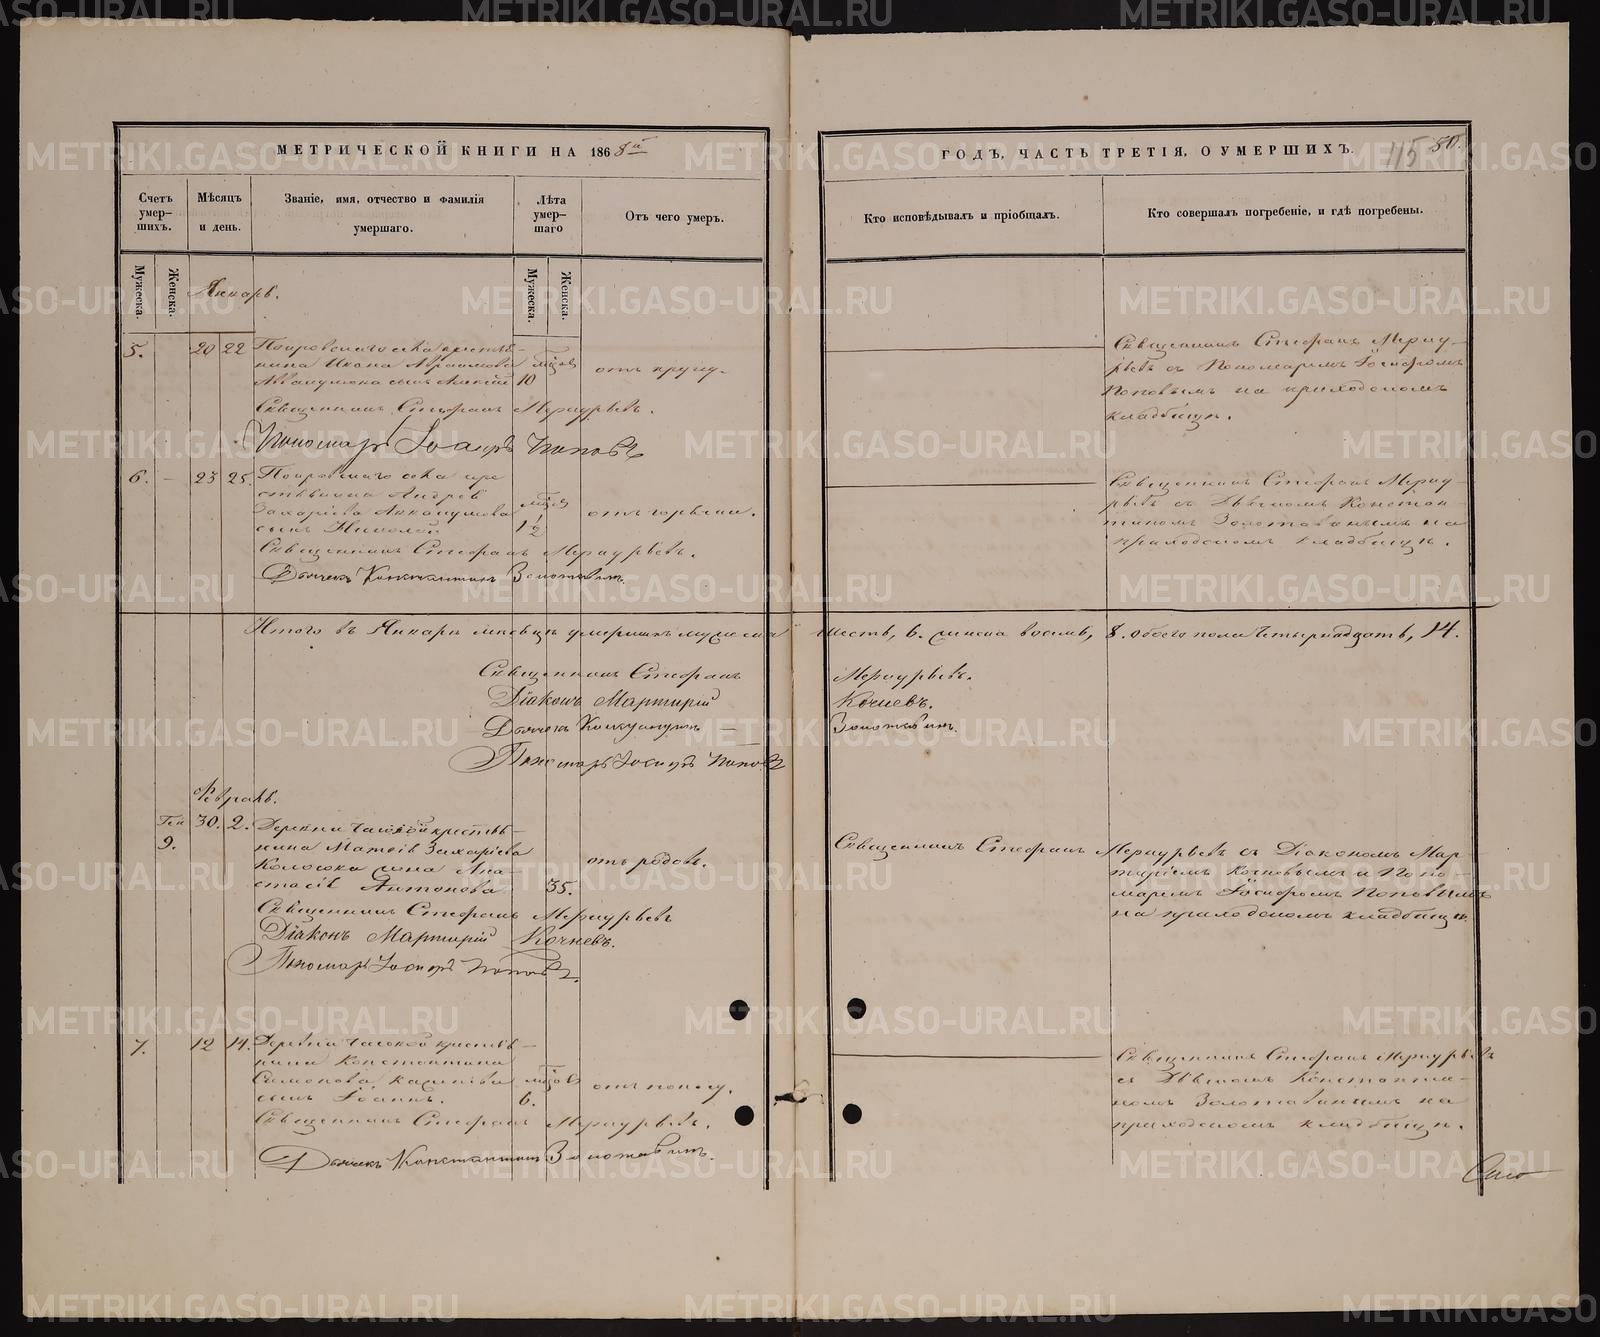 МЕТРИЧЕСКОЙ КНИГИ НА 1868й
Счетъ умер-шихъ.
Мѣсяцъ и день.
Званіе, имя, отчество и фамилія умершаго.
Лѣта умер-шаго
Отъ чего умеръ.
Мужеска.
Женска.
Мужеска.
Женска.
Январь.
5. 20 22 Покровскаго села крестья-
нина Ивана Аврамова мѣсяц.
сынъ Алексій 10 отъ
Священникъ Стефанъ Меркурьевъ.
Пономарь Іосифъ Поповъ
6. — 23 25. Покровскаго села кре
стьянина Андрея
Захаріева
сынъ Николай 1 1/2 отъ горячки.
Священникъ Стефанъ Меркурьевъ.
Дьячекъ Константинъ Золотавинъ.
Итого въ Январѣ мѣсяцѣ умершихъ мужеска
Священникъ Стефанъ
Діаконъ Мартирій
Дьячекъ Константинъ
Пономарь Іосифъ Поповъ
Февраль.
Ген 30. 2. Деревни крестья-
9. нина Матѳія Захаріева
жена Ана-
стасія Антонова 35. отъ родовъ.
Священникъ Стефанъ Меркурьевъ
Діаконъ Мартирій Кочневъ.
Пономарь Іосифъ Поповъ.
7. 12 14. Деревни крестья-
нина Константина
Симонова
сынъ Іоаннъ. 6. отъ поносу.
Священникъ Стефанъ Меркурьевъ.
Дьячекъ Константинъ Золотавинъ.
ГОДЪ, ЧАСТЬ ТРЕТІЯ, О УМЕРШИХЪ.
115 50.
Кто исповѣдывалъ и пріобщалъ.
Кто совершалъ погребеніе, и гдѣ погребены.
Священникъ Стефанъ Мерку-
рьевъ съ Пономаремъ Іосифомъ
Поповымъ на приходскомъ
кладбищѣ.
Священникъ Стефанъ Мерку-
рьевъ съ Дьячкомъ Констан-
тиномъ Золотавинымъ на
приходскомъ кладбищѣ.
шесть, 6. женска восемь, 8. обоего пола четырнадцать, 14.
Меркурьевъ.
Кочневъ.
Золотавинъ.
Священникъ Стефанъ Меркурьевъ съ Діакономъ Мар-
тиріемъ Кочневымъ и Поно-
маремъ Іосифомъ Поповымъ
на приходскомъ кладбищѣ.
Священникъ Стефанъ Меркурьевъ
съ Дьячкомъ Константи-
номъ Золотавинымъ на
приходскомъ кладбищѣ.
METRIKI.GASO-URAL.RU